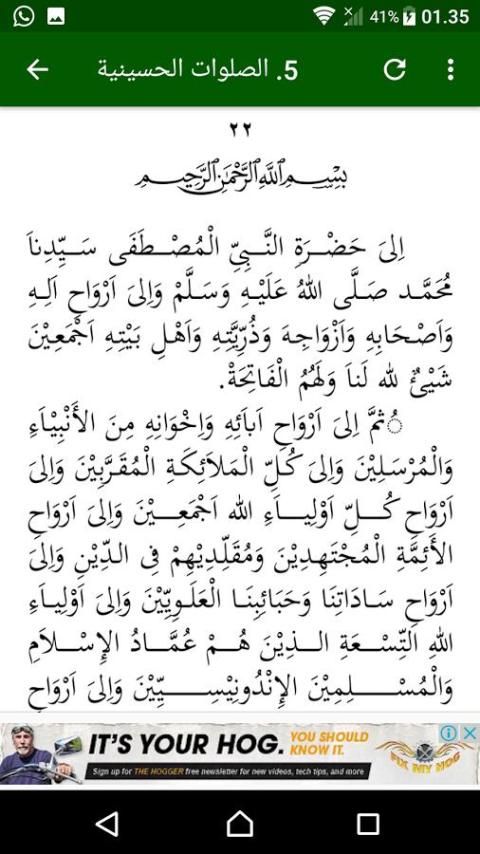 41% 01.35
5. الصلوات الحسينية
٢٢
بِسْمِ اللَّهِ الرَّحْمَنِ الرَّحِيمِ
اِلىَ حَضْرَةِ النَّبِيِّ الْمُصْطَفَى سَيِّدِناَ
مُحَمَّد صَلَّى اللهُ عَلَيْهِ وَسَلَّمْ وَاِلىَ اَرْوَاحِ اَلِهِ
وَاَصْحَابِهِ وَاَزْوَاجِهَ وَذُرِّيَّتِهِ وَاَهْلِ بَيْتِهِ اَجْمَعِيْنَ
شَيْئٌ لله لَناَ وَلَهُمُ الْفَاتِحَةْ.
ُثمَّ اِلىَ اَرْوَاحِ اَباَئِهِ وَاِخْوَانِهِ مِنَ الأَنْبِيْاَءِ
وَالْمُرْسَلِيْنَ وَاِلىَ كُلِّ الْمَلاَئِكَةِ الْمُقَرَّبِيْنَ وَاِلىَ
اَرْوَاحِ كُلِّ اَوْلِيـاَءِ الله اَجْمَعِيْنَ وَاِلىَ اَرْوَاحِ
الأَئِمَّةِ الْمُجْتَهِدِيْنَ وَمُقَلِّدِيْهِمْ فِى الدِّيْنِ وَاِلىَ
اَرْوَاحِ سَادَاتِنَا وَحَبَائِبِنَا الْعَلَوِيِّيْنَ وَاِلىَ اَوْلِيـاَءِ
اللهِ التِّسْعَةِ الذِيْنَ هُمْ عُمَّادُ الإِسْلاَمِ
وَالْمُسْلِمِيْنَ الإِنْدُونِيْسِيِّيْنَ وَاِلىَ اَرْوَاحِ
IT'S YOUR HOG. YOU SHOULD
KNOW IT.
Sign up for THE HOGGER free newsletter for new videos, tech tips, and more
FIX MY HOG